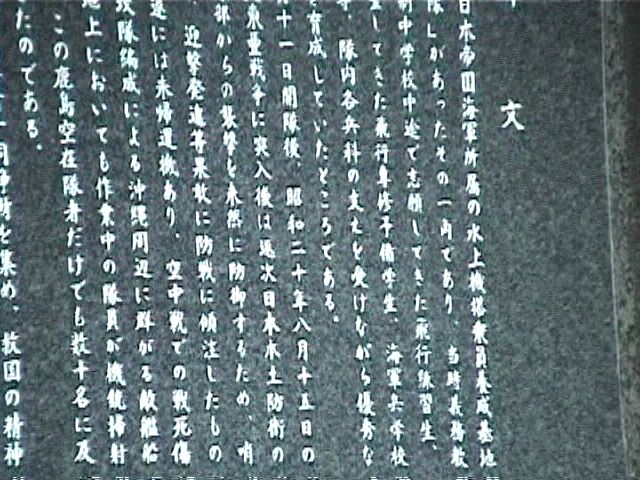 文
日本帝国海軍所属の水上機搭乗員養成基地
隊」があったその一角であり、当時義務教
制中学校中途で志願してきた飛行練習生、
してきた飛行専修予備学生、海軍兵学校
、隊内各兵科の支えを受けながら優秀な
育成していたところである。
十一日開隊後、昭和二十年八月十五日の
東亜戦争に突入後は逐次日本本土防衛の
部からの襲撃を未然に防御するため、哨
迎撃発進等果敢に防戦に傾注したもの
遂には未帰還機あり、空中戦での戦死傷
攻隊編成による沖縄周辺に群がる敵艦船
地上においても作業中の隊員が機銃掃射
この鹿島空在隊者だけでも数十名に及
たのである。
を集め、救国の精神